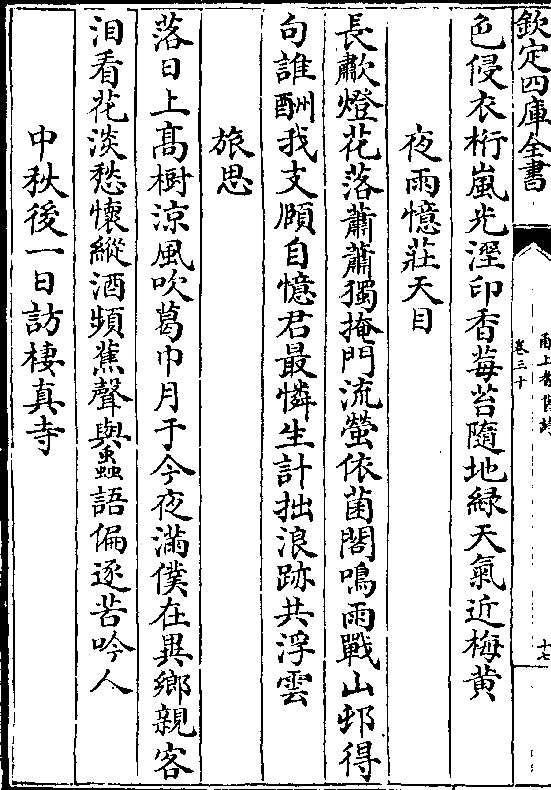 欽定四庫全書
卷三十
十七
色侵衣桁嵐光溼印香莓苔隨地緑天氣近梅黄
夜雨憶莊天目
長歗燈花落蕭蕭獨掩門流螢依菌閣鳴雨戰山邨得
句誰酬我支頤自憶君最憐生計拙浪跡共浮雲
旅思
落日上髙樹涼風吹葛巾月于今夜滿僕在異鄉親客
泪看花淡愁懷縱酒頻蕉聲與蟲語偏逐苦吟人
中秋後一日訪棲真寺